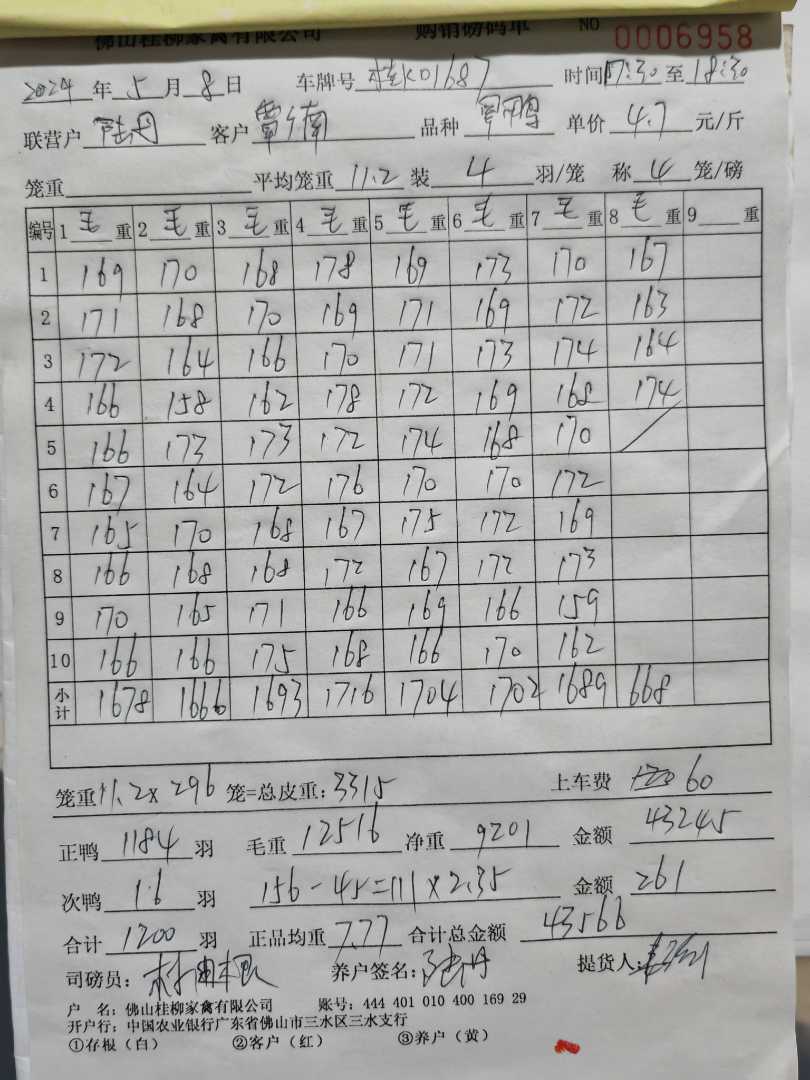 佛山桂柳家禽有限公司 购销磅码单 NO 0006958
2024 年 5 月 8 日 车牌号 桂KD1687 时间 17:30 至 18:30
联营户 陆丹 客户 覃南 品种 单价 4.7 元/斤
笼重 平均笼重 11.2 装 4 羽/笼 称 4 笼/磅
编号 1 毛 重 2 毛 重 3 毛 重 4 毛 重 5 毛 重 6 毛 重 7 毛 重 8 毛 重 9 重
1 169 170 168 178 169 173 170 167
2 171 168 170 169 171 169 172 163
3 172 164 166 170 171 173 174 164
4 166 158 162 178 172 169 168 174
5 166 173 173 172 174 168 170
6 167 164 172 176 170 170 172
7 165 170 168 167 175 172 169
8 166 168 168 172 167 172 173
9 170 165 171 166 169 166 159
10 166 166 175 168 166 170 162
小计 1678 1666 1693 1716 1704 1702 1689 668
笼重 11.2 x 296 笼=总皮重: 3315 上车费 60
正鸭 1184 羽 毛重 12516 净重 9201 金额 43245
次鸭 16 羽 156-45=111x2.35 金额 261
合计 1200 羽 正品均重 7.77 合计总金额 43566
司磅员: 养户签名: 陆丹 提货人:
户 名: 佛山桂柳家禽有限公司 账号: 444 401 010 400 169 29
开户行: 中国农业银行广东省佛山市三水区三水支行
①存根（白） ②客户（红） ③养户（黄）